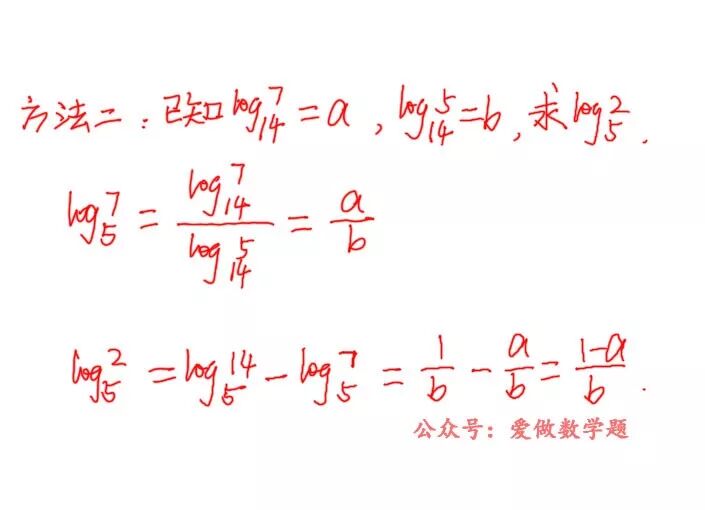 方法二：已知 log₁₄7 = a , log₁₄5 = b , 求 log₅2 .
log₅7 = log₁₄7 / log₁₄5 = a/b
log₅2 = log₅14 - log₅7 = 1/b - a/b = (1-a)/b .
公众号：爱做数学题